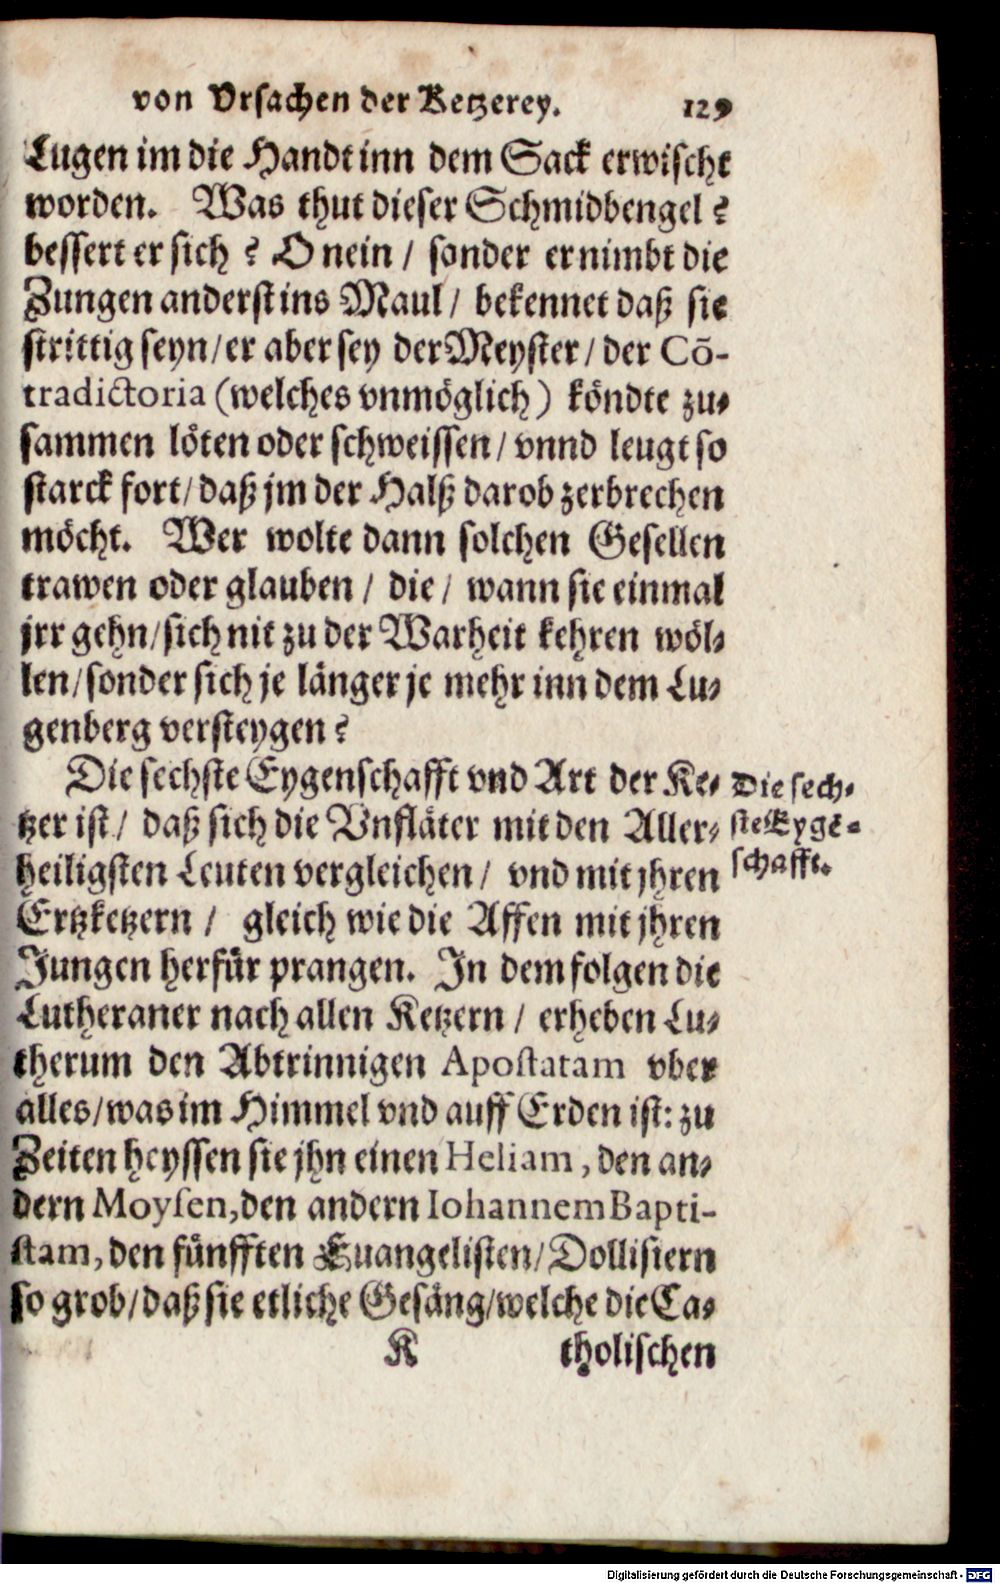 von Vrsachen der Ketzerey. 129
Lugen im die Handt inn dem Sack erwischt
worden. Was thut dieser Schmidbengel?
bessert er sich? O nein / sonder er nimbt die
Zungen anderst ins Maul / bekennet daß sie
strittig seyn / er aber sey der Meyster / der Cō-
tradictoria (welches vnmöglich) köndte zu-
sammen löten oder schweissen / vnnd leugt so
starck fort / daß jm der Halß darob zerbrechen
möcht. Wer wolte dann solchen Gesellen
trawen oder glauben / die / wann sie einmal
jrr gehn / sich nit zu der Warheit kehren wöl-
len / sonder sich je länger je mehr inn dem Lu-
genberg versteygen?
Die sechste Eygenschafft vnd Art der Ke-
tzer ist / daß sich die Vnfläter mit den Aller-
heiligsten Leuten vergleichen / vnd mit jhren
Ertzketzern / gleich wie die Affen mit jhren
Jungen herfür prangen. In dem folgen die
Lutheraner nach allen Ketzern / erheben Lu-
therum den Abtrinnigen Apostatam vber
alles / was im Himmel vnd auff Erden ist: zu
Zeiten heyssen sie jhn einen Heliam, den an-
dern Moysen, den andern Iohannem Bapti-
stam, den fünfften Euangelisten / Dollisiern
so grob / daß sie etliche Gesäng / welche die Ca-
K tholischen
Die sech-
ste Eygē-
schafft.
Digitalisierung gefördert durch die Deutsche Forschungsgemeinschaft - DFG